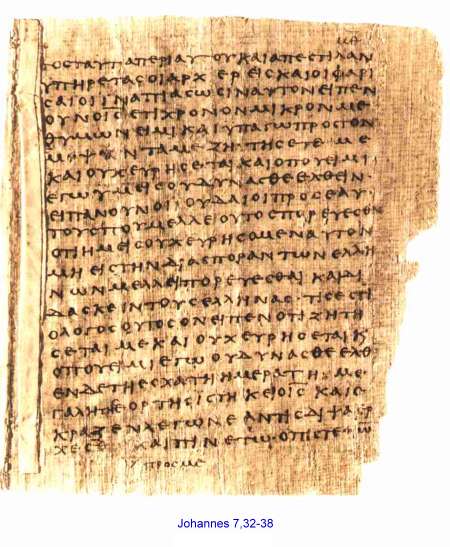 ΤΟϹΤΑΥΤΑΠΕΡΙΑΥΤΟΥΚΑΙΑΠΕϹΤΙΛΑΝ
ΥΠΗΡΕΤΑϹΟΙΑΡΧΕΡΕΙϹΚΑΙΟΙΦΑΡΙ
ϹΑΙΟΙΙΝΑΠΙΑϹΩϹΙΝΑΥΤΟΝΕΙΠΕΝ
ΟΥΝΟΙϹΕΤΙΧΡΟΝΟΝΜΙΚΡΟΝΜΕ
ΘΥΜΩΝΕΙΜΙΚΑΙΥΠΑΓΩΠΡΟϹΤΟΝ
ΜΨΑΝΤΑΜΕΖΗΤΗϹΕΤΕΜΕ
ΚΑΙΟΥΧΕΥΡΗϹΕΤΑΙΚΑΙΟΠΟΥΕΙΜΙ
ΕΓΩΥΜΕΙϹΟΥΔΥΝΑϹΘΕΕΛΘΕΙΝ·
ΕΙΠΑΝΟΥΝΟΙΙΟΥΔΑΙΟΙΠΡΟϹΕΑΥ
ΤΟΥϹΠΟΥΜΕΛΛΕΙΟΥΤΟϹΠΟΡΕΥΕϹΘ
ΟΤΙΗΜΕΙϹΟΥΧΕΥΡΗϹΟΜΕΝΑΥΤΟΝ
ΜΗΕΙϹΤΗΝΔΙΑϹΠΟΡΑΝΤΩΝΕΛΛΗ
ΝΩΝΜΕΛΛΕΙΠΟΡΕΥΕϹΘΑΙΚΑΙΔΙ
ΔΑϹΚΕΙΝΤΟΥϹΕΛΛΗΝΑϹ·ΤΙϹΕϹΤΙ
ΟΛΟΓΟϹΟΥΤΟϹΟΝΕΙΠΕΝΟΤΙΖΗΤΗ
ϹΕΤΑΙΜΕΚΑΙΟΥΧΕΥΡΗϹΕΤΑΙΚ
ΟΠΟΥΕΙΜΙΕΓΩΟΥΔΥΝΑϹΘΕΕΛΘ
ΕΝΔΕΤΗΕϹΧΑΤΗΗΜΕΡΑΤΗΜΕ
ΓΑΛΗΤΗϹΕΟΡΤΗϹΙϹΤΗΚΕΙΟΙϹΚΑΙΕ
ΚΡΑΞΕΝΛΕΓΩΝΕΑΝΤΙϹΔΙΨΑΕΡ
ΧΕϹΘΩΚΑΙΠΙΝΕΤΩ·ΟΠΙϹΤΕΥΩ
ΠΡΟϹΜΕ
Johannes 7,32-38